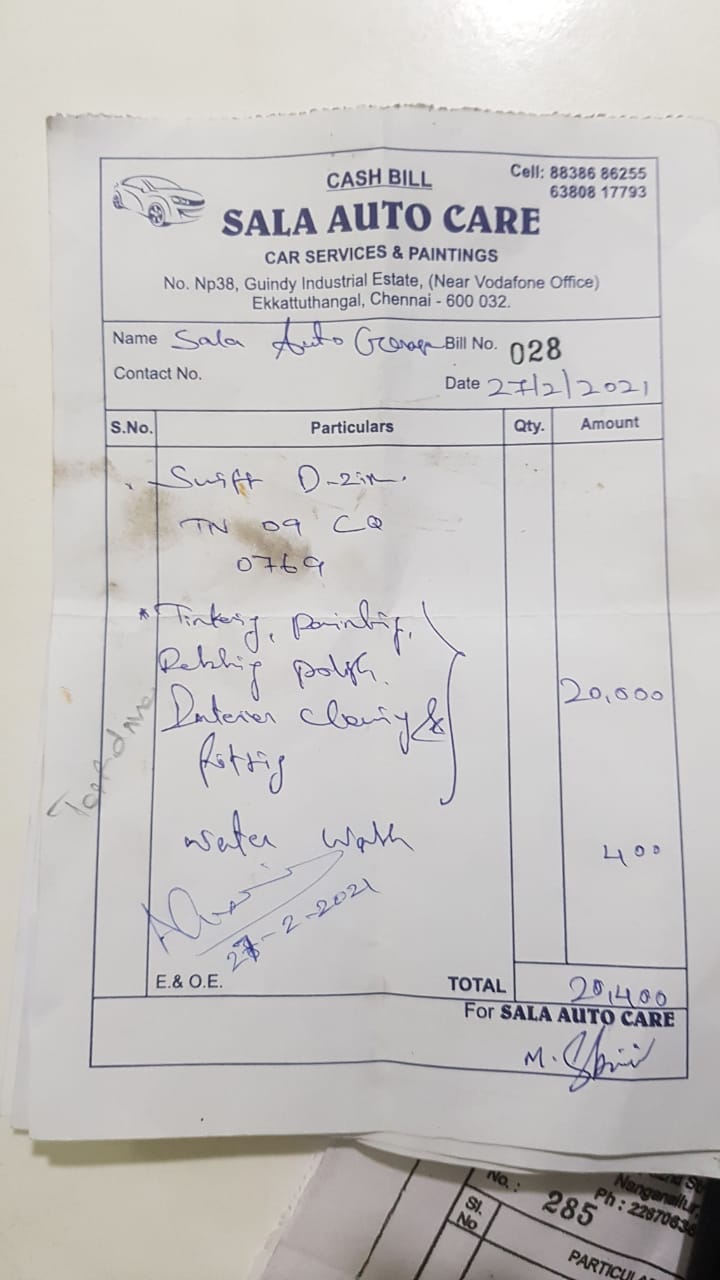 CASH BILL
Cell: 88386 86255
63808 17793
SALA AUTO CARE
CAR SERVICES & PAINTINGS
No. Np38, Guindy Industrial Estate, (Near Vodafone Office)
Ekkattuthangal, Chennai - 600 032.
Name Sala Auto Bill No. 028
Contact No.
Date 27/2/2021
S.No. Particulars Qty. Amount
Swift D-zir.
TN 09 CQ
0769
* Tinkering, painting,
Rubbing polish.
Interior cleaning &
fitting
20,000
water wash 400
27-2-2021
E.& O.E. TOTAL 20,400
For SALA AUTO CARE
No. : 285
Nanganallur,
Ph : 22670636
Sl.
No
PARTICUL